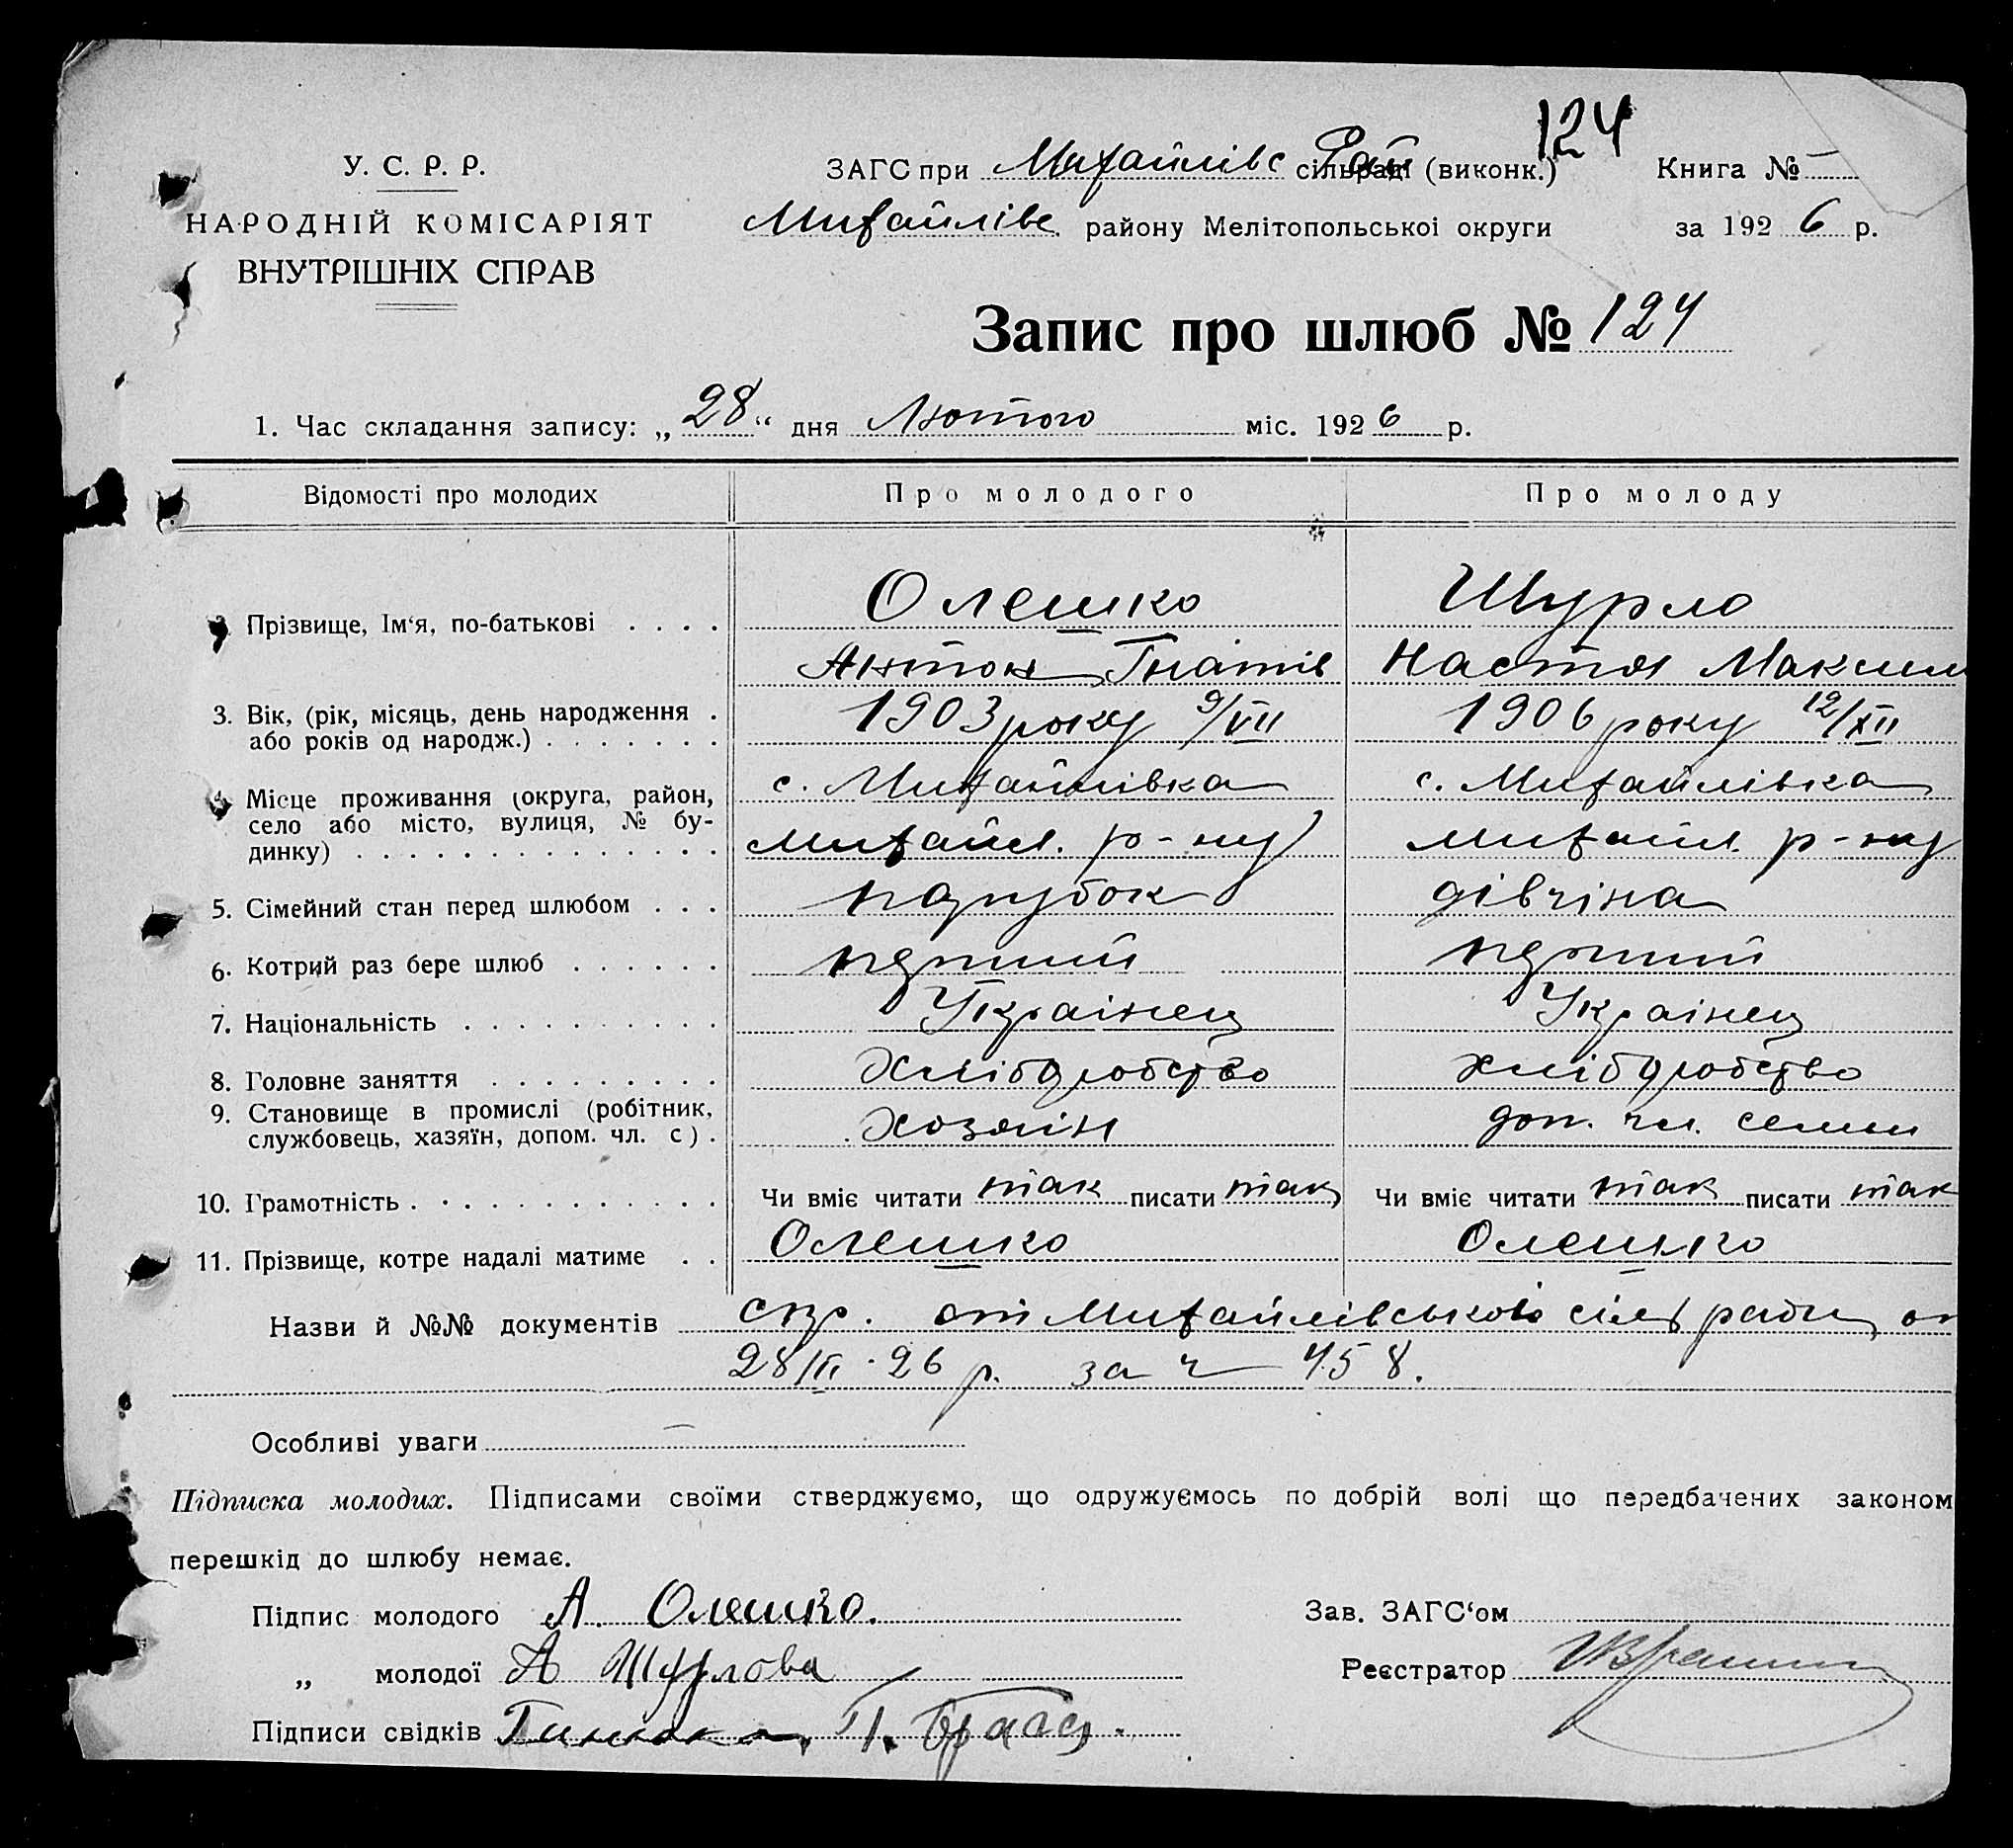 124
У. С. Р. Р.
ЗАГС при Михайлівс Рай сільраді (виконк.) Книга № —
НАРОДНІЙ КОМІСАРІЯТ
Михайлівс. району Мелітопольськоі округи за 1926 р.
ВНУТРІШНІХ СПРАВ
Запис про шлюб № 124
1. Час складання запису: „28“ дня Лютого міс. 1926 р.
Відомості про молодих Про молодого Про молоду
2. Прізвище, Ім‘я, по-батькові . . . . Олешко Шурло
Антон Гнатів Настя Максим
3. Вік, (рік, місяць, день народження . 1903 року 9/VII 1906 року 12/XII
або років од народж.) . . . . . . .
4. Місце проживання (округа, район, с. Михайлівка с. Михайлівка
село або місто, вулиця, № бу- Михайл. р-ну Михайл. р-ну
динку) . . . . . . . . . . . . . . .
5. Сімейний стан перед шлюбом . . . парубок дівчіна
6. Котрий раз бере шлюб . . . . . . перший перший
7. Національність . . . . . . . . . . Украінец Украінец
8. Головне заняття . . . . . . . . . Хлібдробство хлібдробство
9. Становище в промислі (робітник, Хозяін доп. чл. семии
службовець, хазяїн, допом. чл. с) .
10. Грамотність . . . . . . . . . . . . Чи вміє читати так писати так Чи вміє читати так писати так
11. Прізвище, котре надалі матиме . . Олешко Олешко
Назви й №№ документів спр. от Михайлівськоі сіль ради от
28/II - 26 р. за ч 458.
Особливі уваги —
Підписка молодих. Підписами своїми стверджуємо, що одружуємось по добрій волі що передбачених законом
перешкід до шлюбу немає.
Підпис молодого А. Олешко. Зав. ЗАГС‘ом
„ молодої А Шурлова Реєстратор
Підписи свідків П.